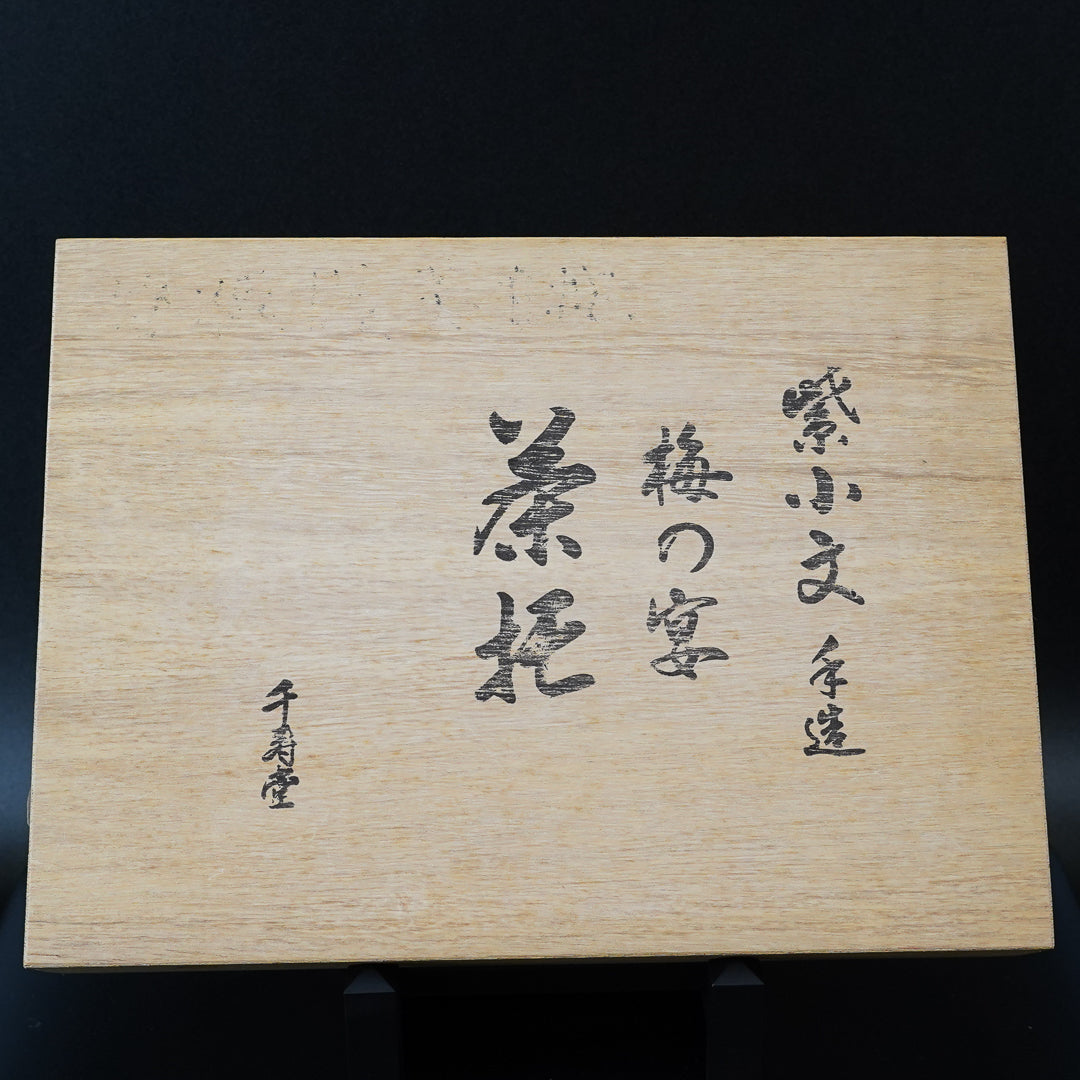 紫小文 手造
梅の宴
茶托
千寿堂